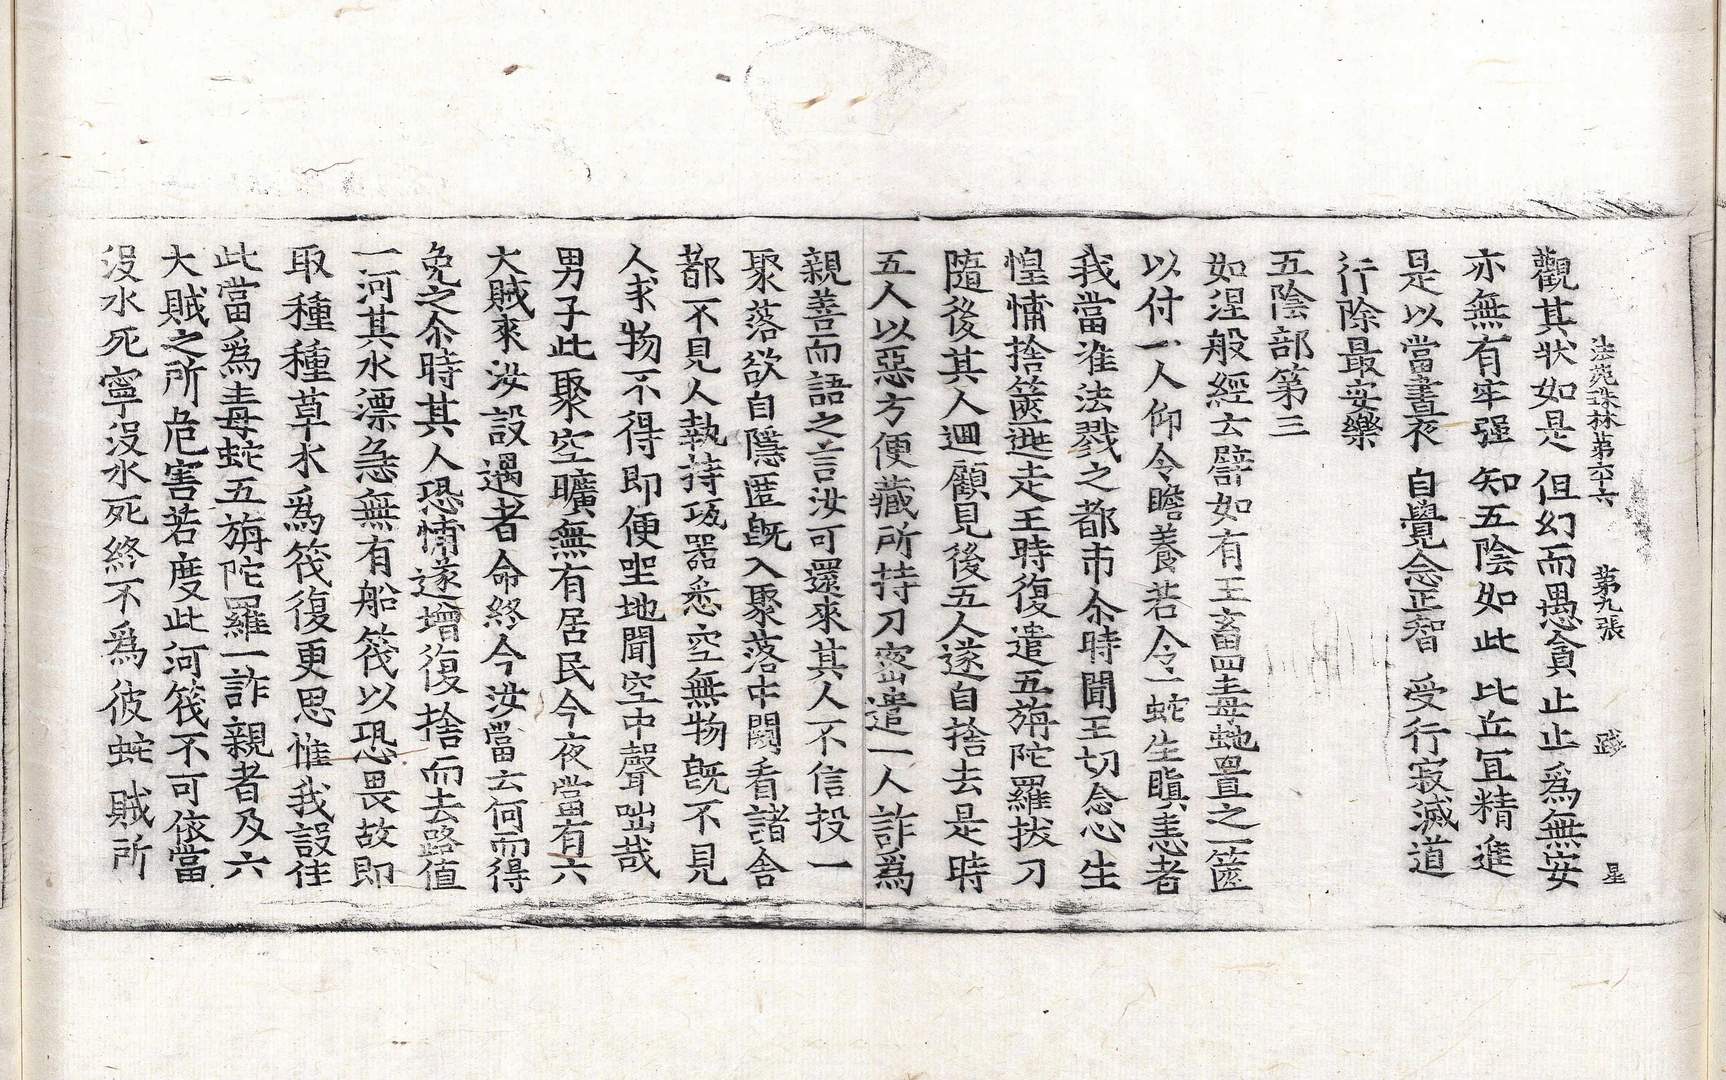 法苑珠林第六十六 第九張 踐 星
觀其狀如是 但幻而愚貪 止止爲無安
亦無有牢强 知五陰如此 比丘冝精進
是以當晝夜 自覺念正智 受行寂滅道
行除最安樂
五陰部第三
如涅般經云譬如有王畜四毒虵置之一篋
以付一人仰令瞻養若令一蛇生瞋恚者
我當准法戮之都市尒時聞王切念心生
惶怖捨篋逃走王時復遣五旃陀羅拔刀
隨後其人迴顧見後五人遂自捨去是時
五人以惡方便藏所持刀密遣一人詐爲
親善而語之言汝可還來其人不信投一
聚落欲自隱匿旣入聚落中闚看諸舍
都不見人執持瓨器悉空無物旣不見
人求物不得即便坐地聞空中聲咄哉
男子此聚空曠無有居民今夜當有六
大賊來汝設遇者命終今汝當云何而得
免之尒時其人恐怖遂增復捨而去路值
一河其水漂急無有船筏以恐畏故即
取種種草木爲筏復更思惟我設住
此當爲毒蛇五旃陀羅一詐親者及六
大賊之所危害若度此河筏不可依當
沒水死寧沒水死終不爲彼蛇賊所